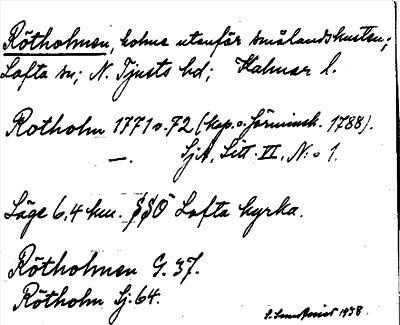 Rötholmen, holme utanför smålandskusten;
Lofta sn; N. Tjusts hd; Kalmar l.
Rotholm 1771 o. 72 (kop. o. Förminsk. 1788).
—. SjA, Litt. VI, N:o 1.
Läge 6,4 km. SSO Lofta kyrka.
Rötholmen G. 37.
Rötholm Sj. 64.
1938